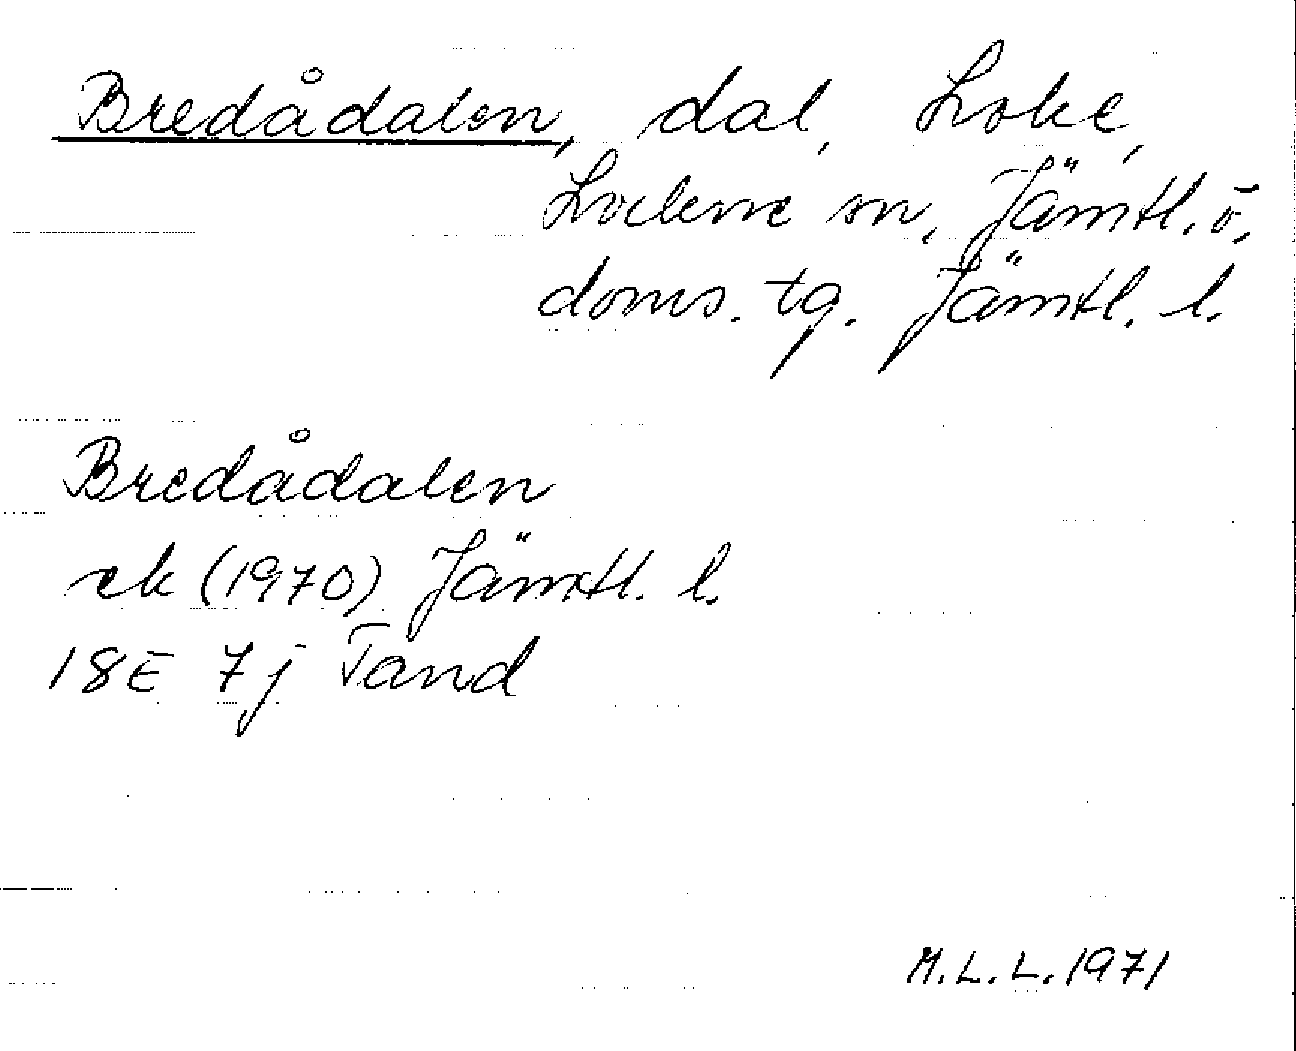 Bredådalen, dal, Loke,
Lockne sn, Jämtl. ö.
doms. tg. Jämtl. l.
Bredådalen
ek (1970) Jämtl. l.
18E 7j Tand
M.L.L. 1971